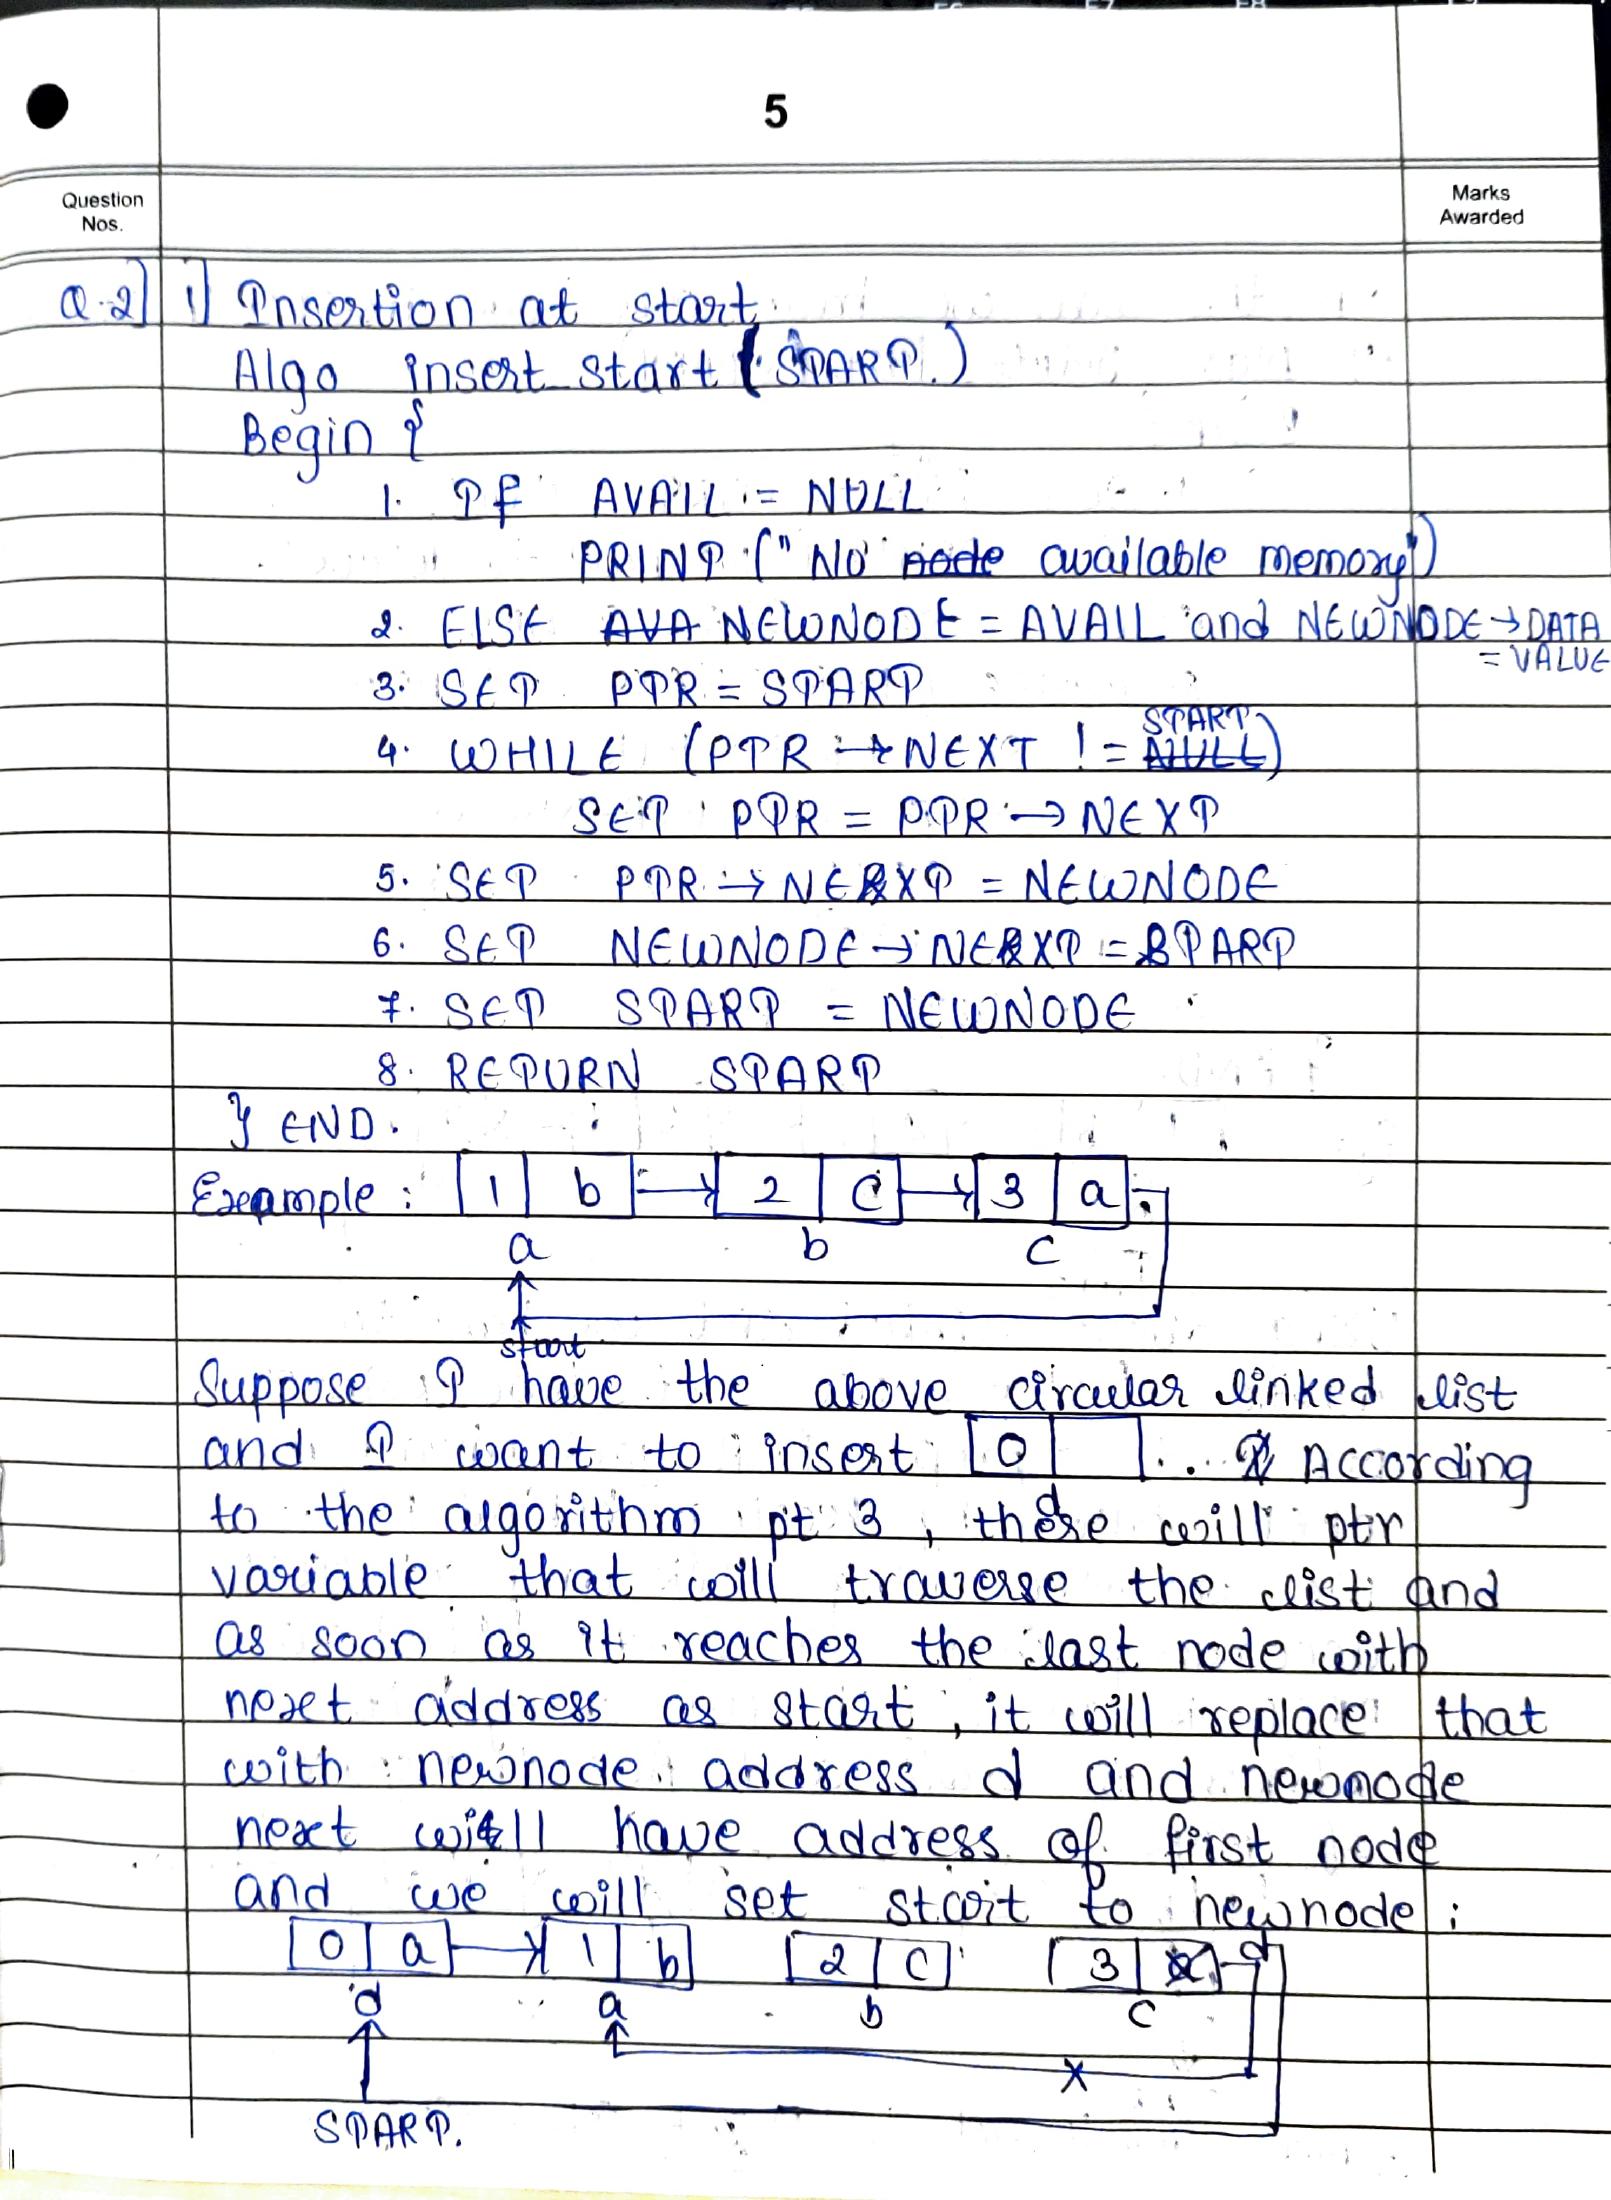 5
Question Nos.
Marks Awarded
Q.2] 1] Insertion at start
Algo insert_start (START)
Begin {
1. If AVAIL = NULL
PRINT ("No node available memory")
2. ELSE AVA NEWNODE = AVAIL and NEWNODE → DATA = VALUE
3. SET PTR = START
4. WHILE (PTR → NEXT != NULL START)
SET PTR = PTR → NEXT
5. SET PTR → NEXT = NEWNODE
6. SET NEWNODE → NEXT = START
7. SET START = NEWNODE
8. RETURN START
} END.
Example: 1 b → 2 c → 3 a
a b c
start
Suppose I have the above circular linked list
and I want to insert 0 . . According
d
to the algorithm pt 3, there will ptr
variable that will traverse the list and
as soon as it reaches the last node with
next address as start, it will replace that
with newnode address d and newnode
next will have address of first node
and we will set start to newnode:
0 a → 1 b 2 c 3 a d
d a b c
x
START.